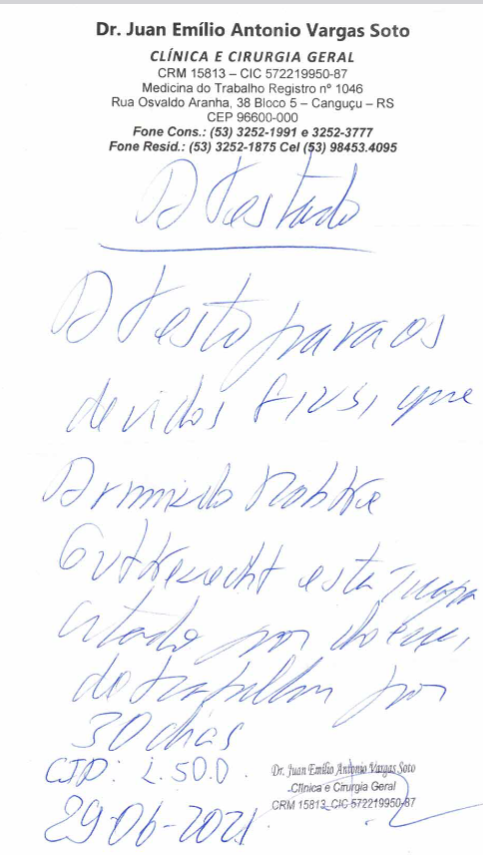 Dr. Juan Emílio Antonio Vargas Soto
CLÍNICA E CIRURGIA GERAL
CRM 15813 – CIC 572219950-87
Medicina do Trabalho Registro nº 1046
Rua Osvaldo Aranha, 38 Bloco 5 – Canguçu – RS
CEP 96600-000
Fone Cons.: (53) 3252-1991 e 3252-3777
Fone Resid.: (53) 3252-1875 Cel (53) 98453.4095
Atestado
Atesto para os
devidos fins, que
Gutknecht está incapa
citado por doença,
do trabalho por
30 dias
CID: L.50.0
29-06-2021
Dr. Juan Emílio Antonio Vargas Soto
-Clínica e Cirurgia Geral
CRM 15813 CIC 572219950-87